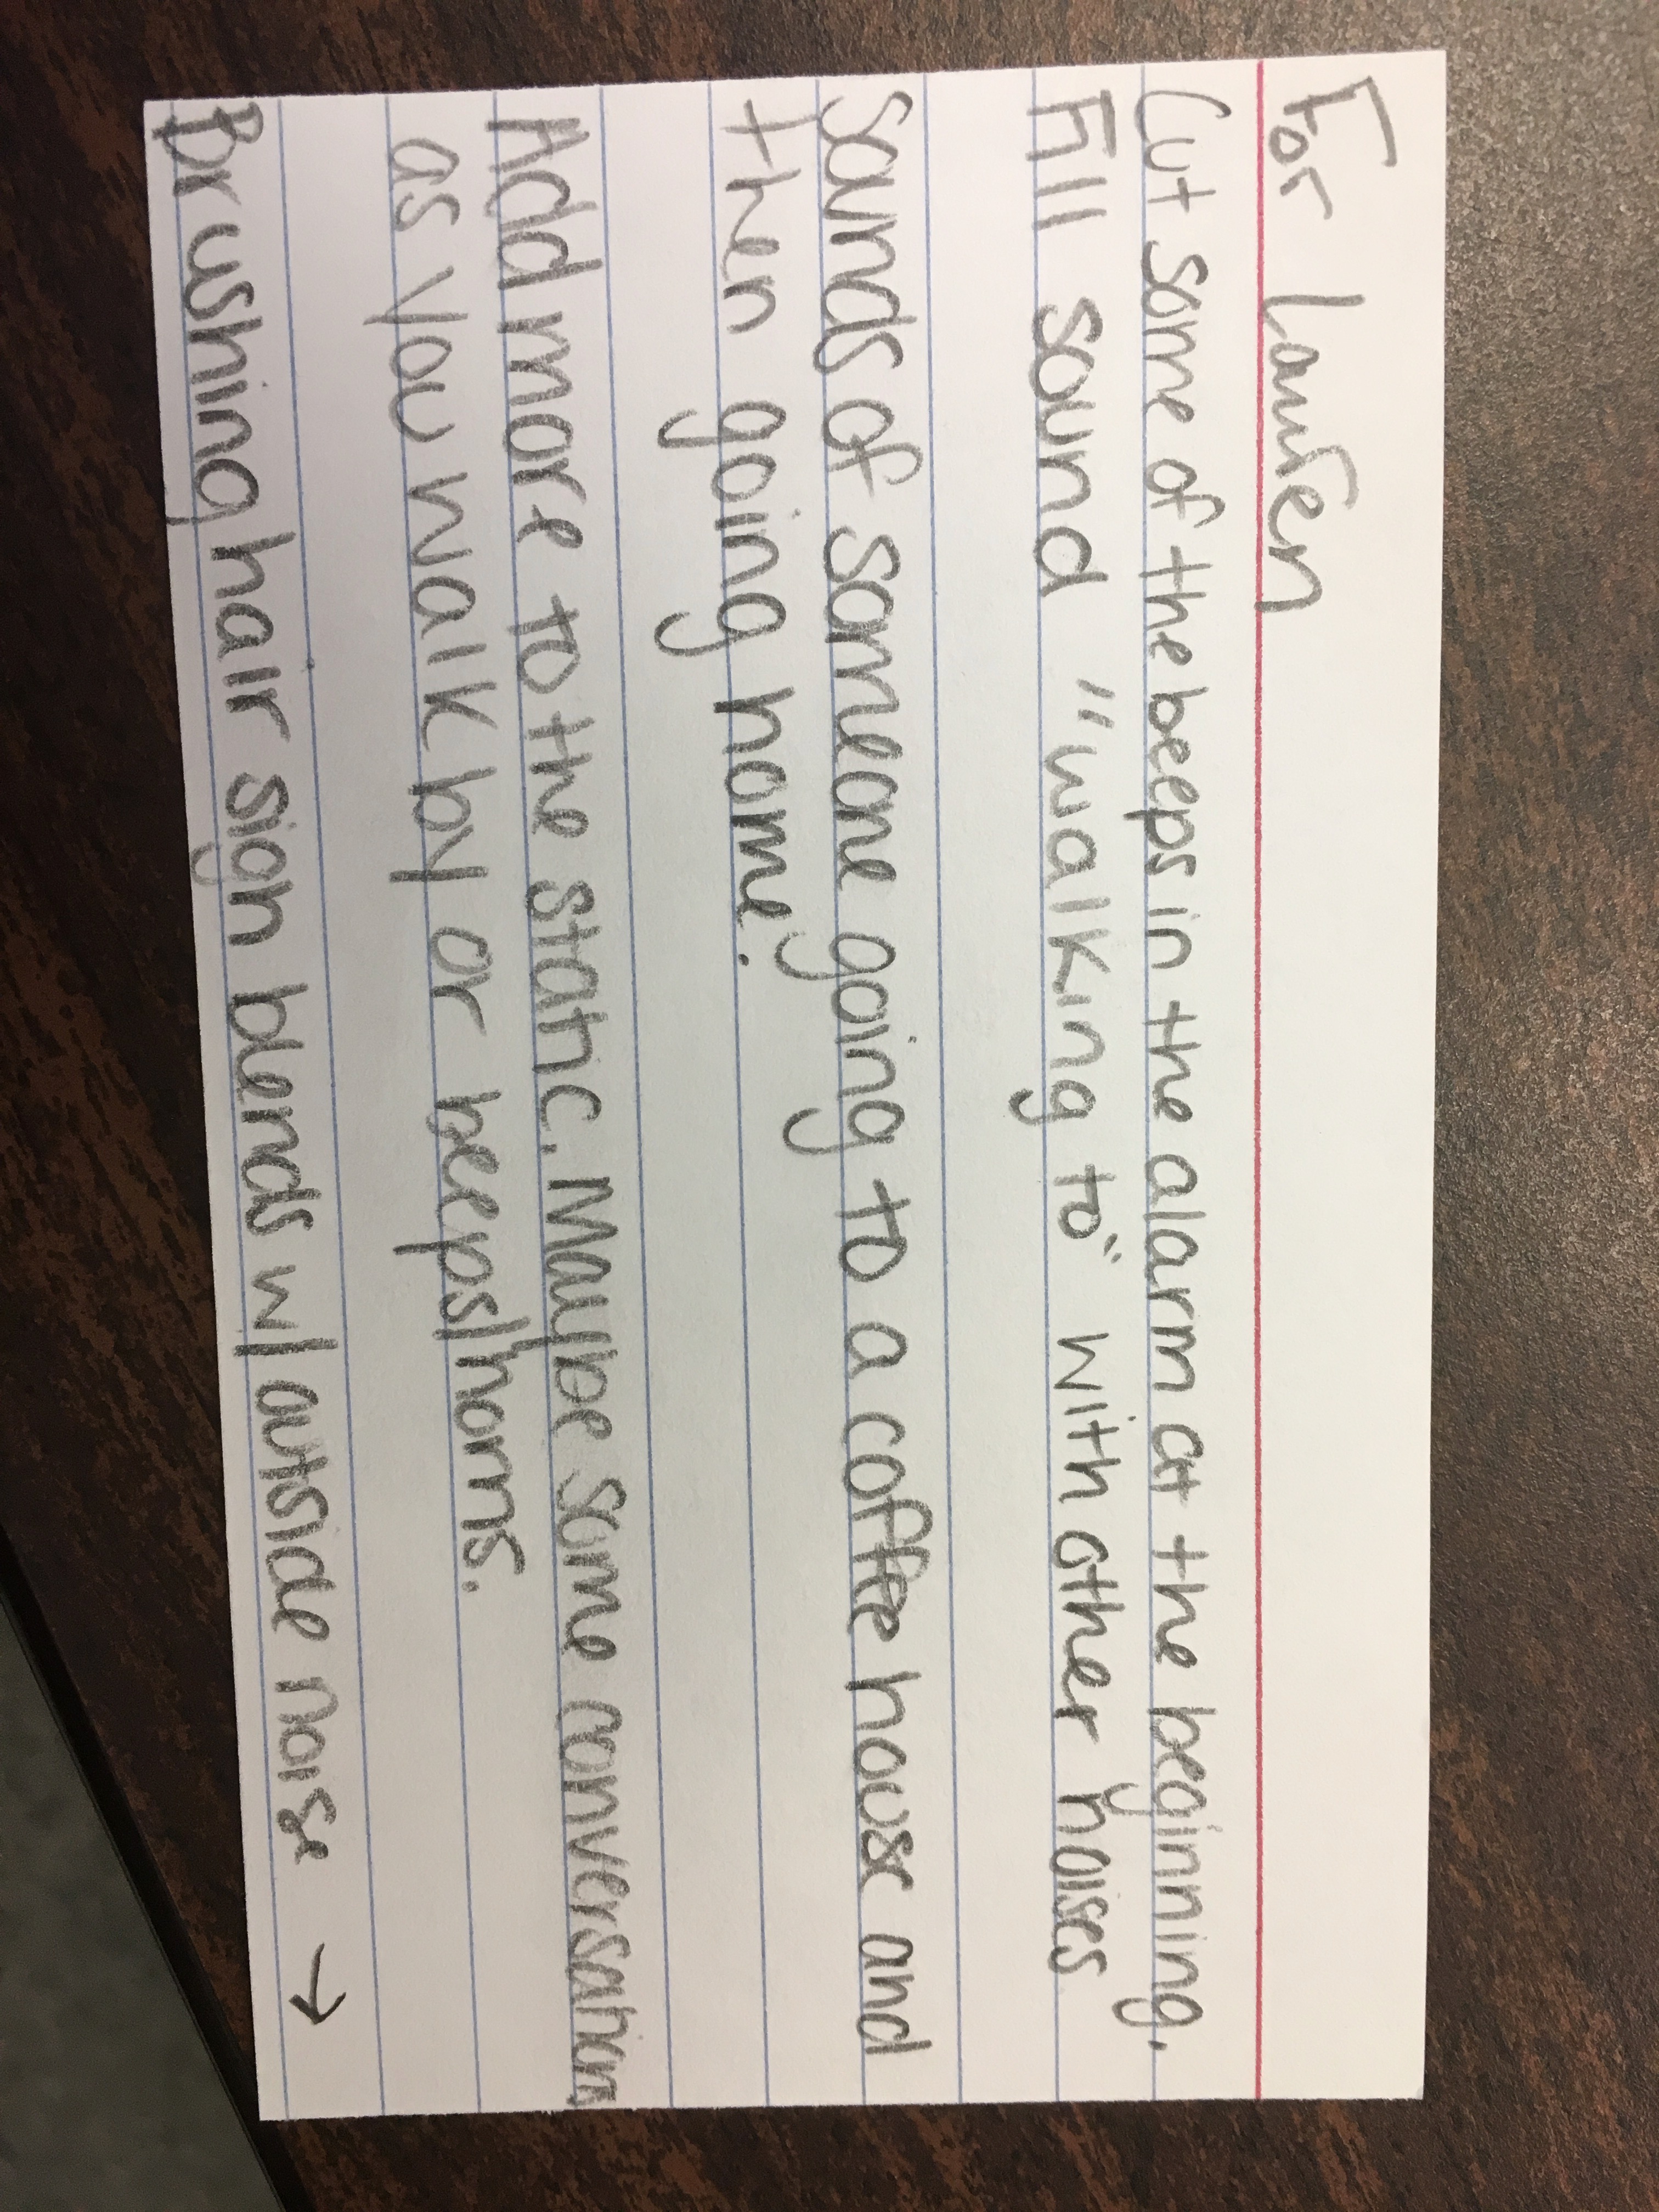 For Lauren
Cut some of the beeps in the alarm at the beginning.
Fill sound "walking to" with other noises
sounds of someone going to a coffee house and
then going home.
Add more to the static. Maybe some conversations
as you walk by or beeps/horns.
Brushing hair sign blends w/ outside noise →